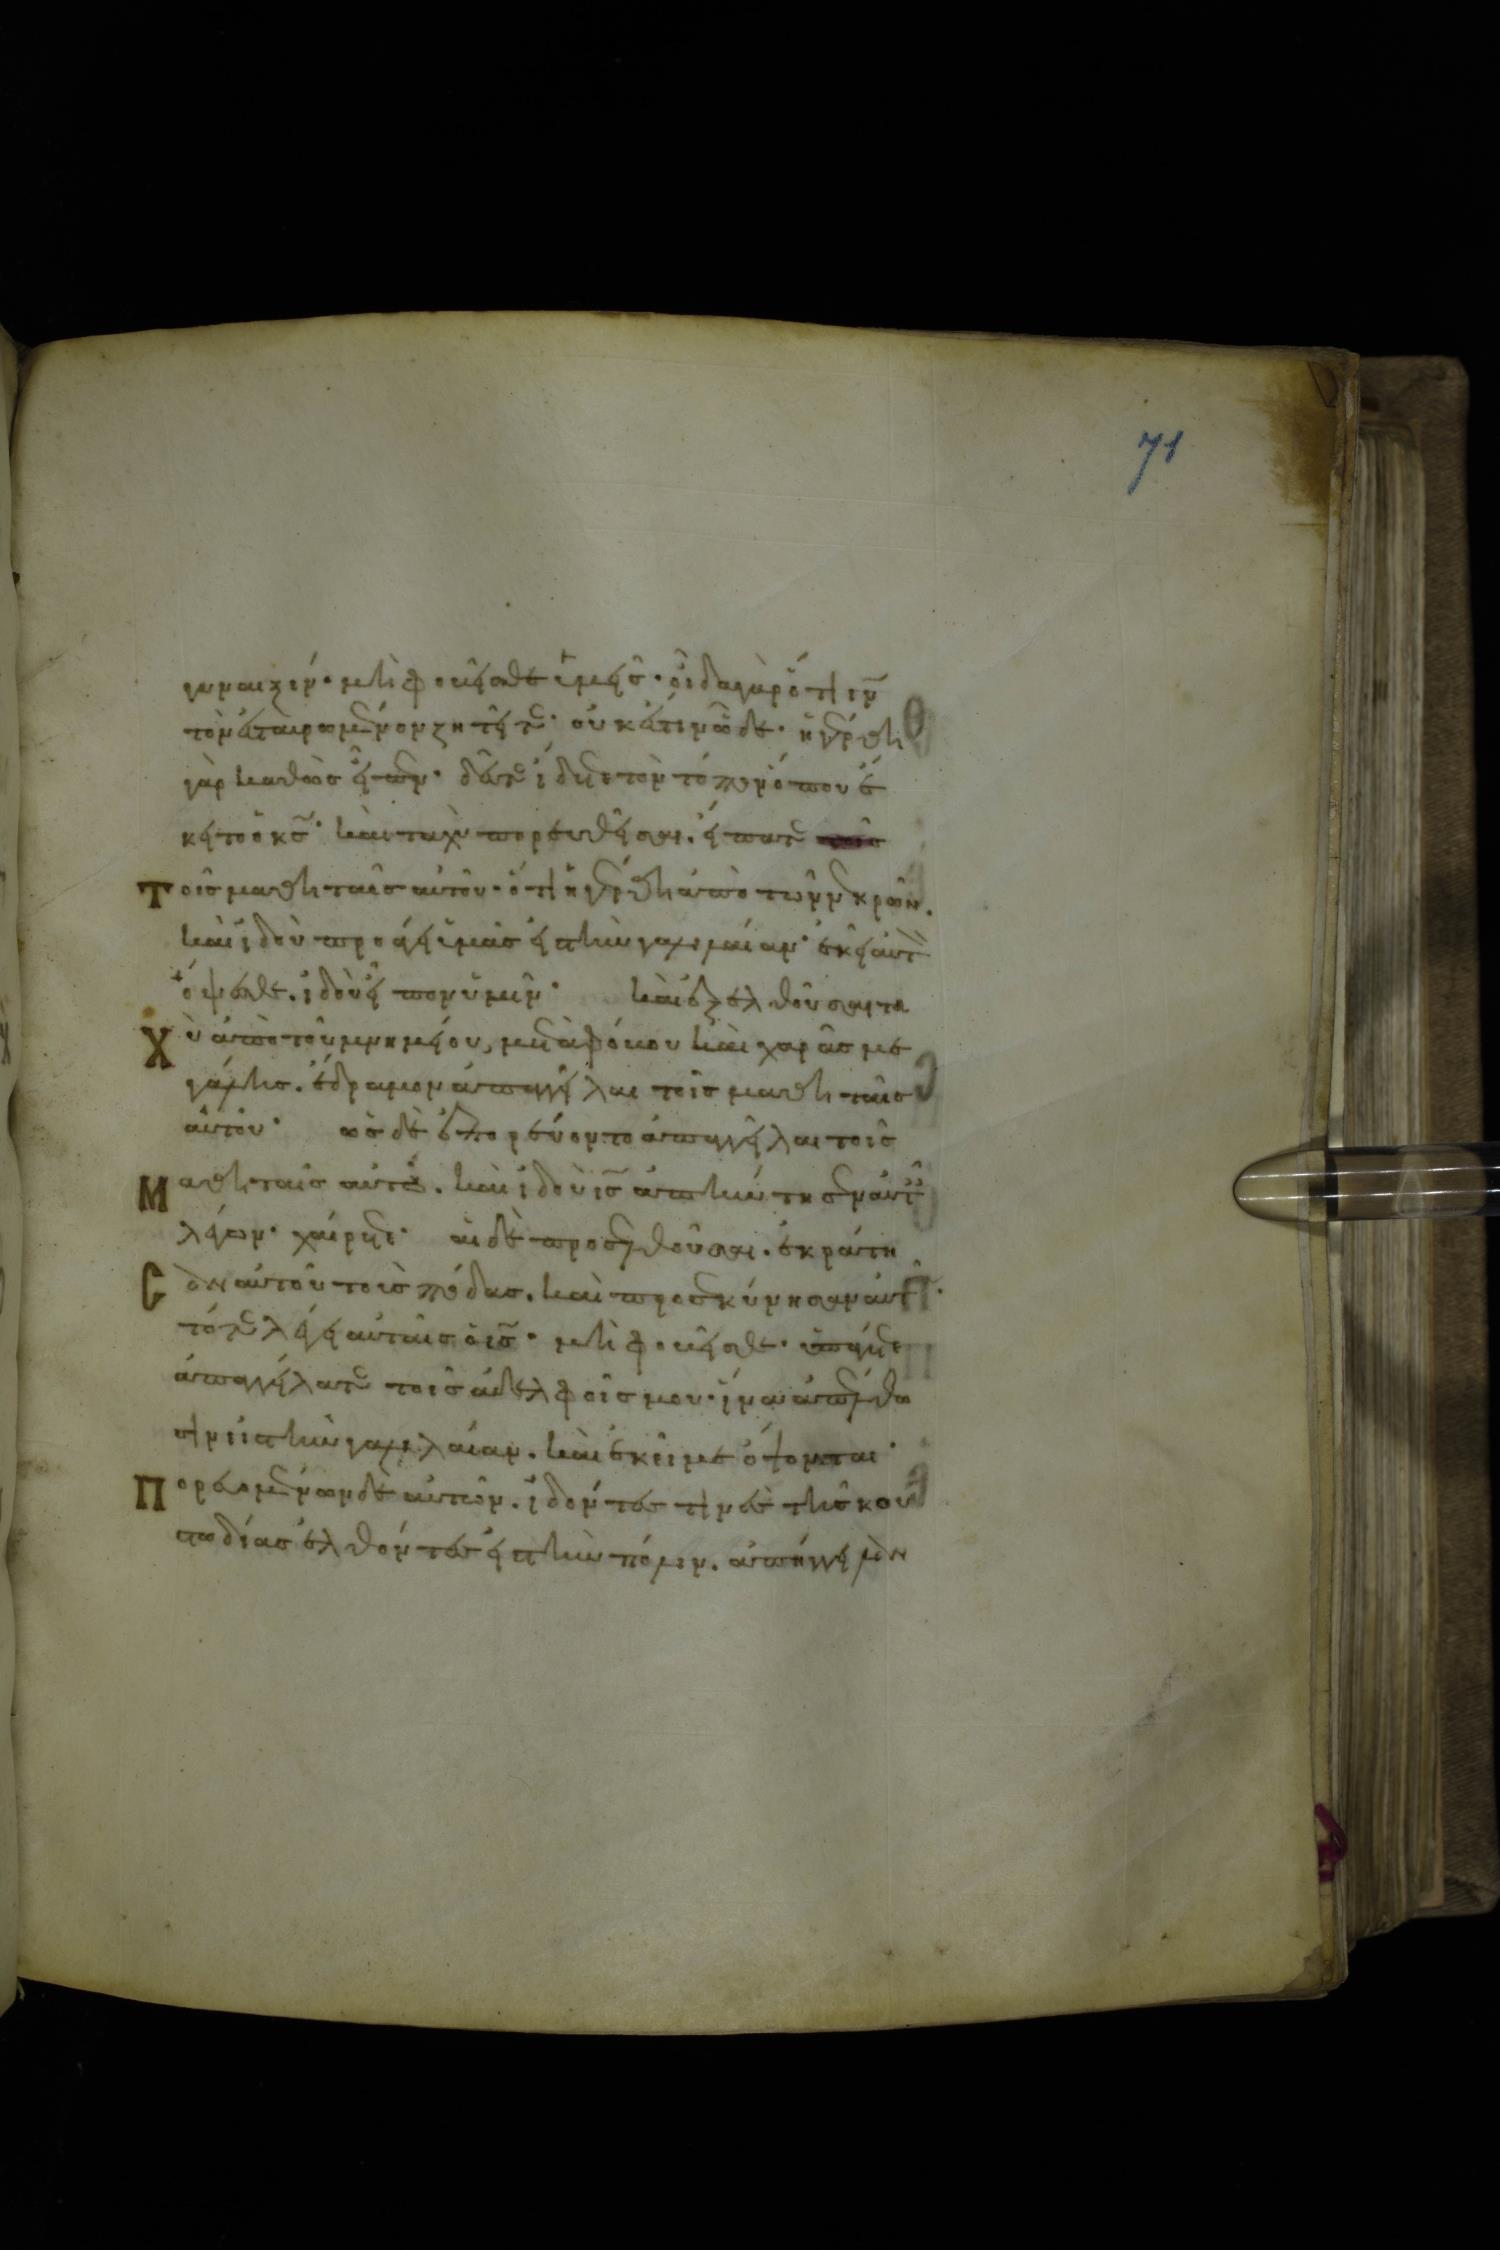 71
γυναιξίν· μὴ φοβεῖσθε ὑμεῖς· οἶδα γὰρ ὅτι ιν̅
τὸν ἐσταυρωμένον ζητεῖτε· οὐκ ἔστιν ὧδε· ἠγέρθη
γὰρ καθὼς εἶπεν· δεῦτε ἴδετε τὸν τόπον ὅπου ἔ
κειτο ὁ κς̅· καὶ ταχὺ πορευθεῖσαι. εἴπατε τοῖς
τοῖς μαθηταῖς αὐτοῦ· ὅτι ἠγέρθη ἀπὸ τῶν νεκρῶν.
καὶ ἰδοὺ προάγει ὑμᾶς εἰς τὴν γαλιλαίαν· ἐκεῖ αὐτὸν
ὄψεσθε. ἰδοὺ εἶπον ὑμῖν· καὶ ἐξελθοῦσαι τα
χὺ ἀπὸ τοῦ μνημείου, μετὰ φόβου καὶ χαρᾶς με
γάλης. ἔδραμον ἀπαγγεῖλαι τοῖς μαθηταῖς
αὐτοῦ· ὡς δὲ ἐπορεύοντο ἀπαγγεῖλαι τοῖς
μαθηταῖς αὐτοῦ. καὶ ἰδοὺ ις̅ ἀπήντησεν αὐταῖς
λέγων· χαίρετε· αἱ δὲ προσελθοῦσαι. ἐκράτη
σὰν αὐτοῦ τοὺς πόδας. καὶ προσεκύνησαν αὐτῷ·
τότε λέγει αὐταῖς ὁ ις̅· μὴ φοβεῖσθε· ὑπάγετε
ἀπαγγείλατε τοῖς ἀδελφοῖς μου· ἵνα ἀπέλθω
σιν εἰς τὴν γαλιλαίαν. καὶ ἐκεῖ με ὄψονται·
πορευομένων δὲ αὐτῶν. ἰδού τινες τῆς κου
στωδίας ἐλθόντες εἰς τὴν πόλιν. ἀπήγγειλὰν